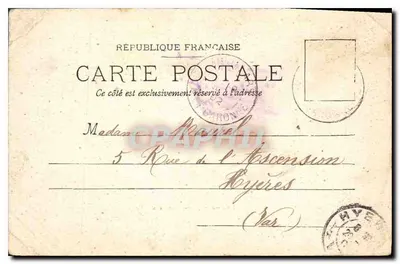 RÉPUBLIQUE FRANÇAISE
CARTE POSTALE
Ce côté est exclusivement réservé à l'adresse
Madame
5 Rue de l'Ascension
Hyères
(Var)